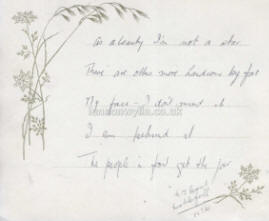 As a beauty I'm not a star
There are others more handsome by far
My face - I don't mind it
I am behind it
The people in front get the jar